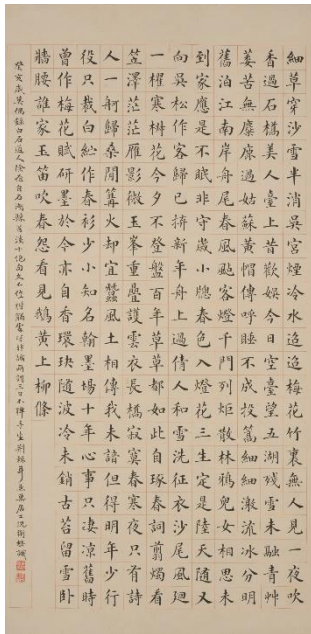 細草穿沙雪半消吳宮煙冷水迢迢梅花竹裏無人見一夜吹
香過石橋美人臺上昔歡娛今日空臺望五湖殘雪未融青艸
萎苦無麋鹿過姑蘇黃帽傳呼睡不成投篙細細激流冰分明
舊泊江南岸舟尾春風颭客燈千門列炬散林鴉兒女相思未
到家應是不眠非守歲小窗春色入燈花三生定是陸天隨又
向吳松作客歸已拚新年舟上過倩人和雪洗征衣沙尾風迴
一櫂寒椒花今夕不登盤百年草草都如此自琢春詞翦燭看
笠澤茫茫雁影微玉峯重疊護雲衣長橋寂寞春寒夜只有詩
人一舸歸桑間篝火却宜蠶風土相傳我未諳但得明年少行
役只裁白紵作春衫少小知名翰墨場十年心事只淒涼舊時
曾作梅花賦研墨於今亦自香環玦隨波冷未銷古苔留雪臥
牆腰誰家玉笛吹春怨看見鵝黃上柳條
癸亥歲莫偶錄白石道人除夜自石湖歸苕溪十絕句